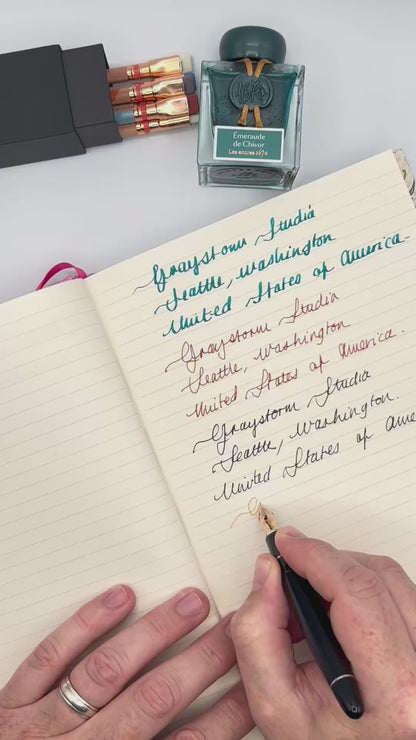 Émeraude
de Chivor
Les encres 1670
Graystorm Studia
Seattle, Washington
United States of America.
Graystorm Studia
Seattle, Washington
United States of America.
Graystorm Studia
Seattle, Washington.
United States of Ame